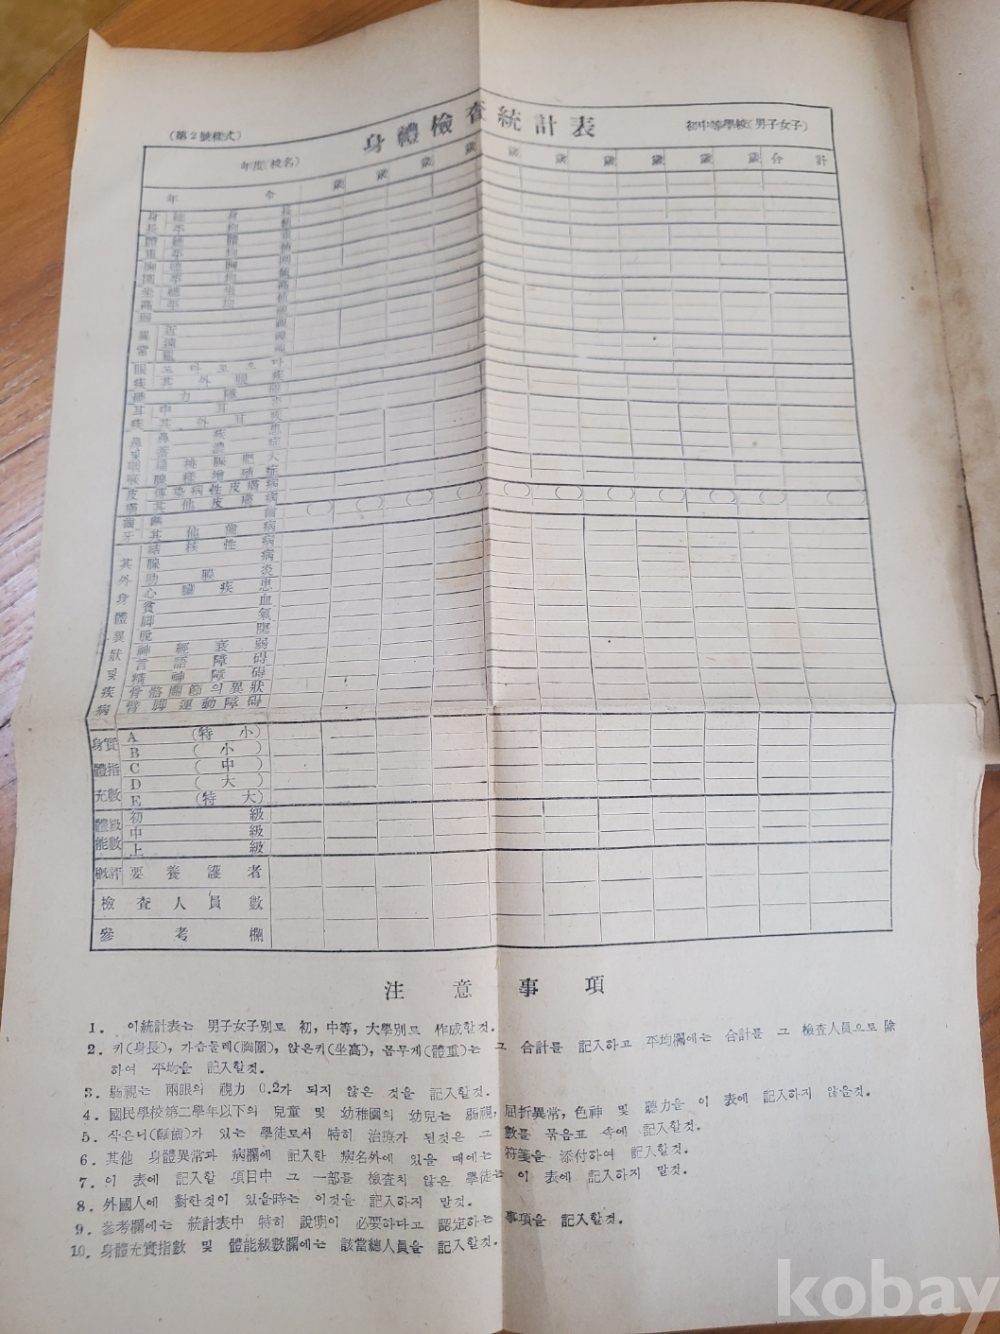 (第2號樣式)
身體檢査統計表
初中等學校(男子女子)
年度(校名)
歲 歲 歲 歲 歲 歲 歲 歲 歲 歲 合計
年 令
身長 總身長
平均
體重 總體重
平均
胸圍 總胸圍
平均
坐高 總坐高
平均
異常
眼疾 도라코ー마
其外眼疾
聽力障
耳疾 中耳
其外耳疾
傳染病性皮膚病
其他皮膚病
齒牙
其他齒病
其外身體異狀及疾病
結核性病
肋膜炎
心臟疾患
貧血
脚氣
脫腸
神經衰弱
言語障碍
精神障碍
骨骼關節의異狀
臂脚運動障碍
身體充實指數
A (特小)
B (小)
C (中)
D (大)
E (特大)
體能級數
初級
中級
上級
槪評 要養護者
檢査人員數
參考欄
注意事項
1. 이統計表는 男子女子別로 初, 中等, 大學別로 作成할것.
2. 키(身長), 가슴둘레(胸圍), 앉은키(坐高), 몸무게(體重)는 그 合計를 記入하고 平均欄에는 合計를 그 檢査人員으로 除
하여 平均을 記入할것.
3. 弱視는 兩眼의 視力 0.2가 되지 않은 것을 記入할것.
4. 國民學校第二學年以下의 兒童 및 幼稚園의 幼兒는 弱視, 屈折異常, 色神 및 聽力을 이 表에 記入하지 않을것.
5. 삭은니(齲齒)가 있는 學徒로서 特히 治療가 된것은 그 數를 묶음표 속에 記入할것.
6. 其他 身體異常과 病欄에 記入한 病名外에 있을 때에는 符箋을 添付하여 記入할것.
7. 이 表에 記入할 項目中 그 一部를 檢査치 않은 學徒는 이 表에 記入하지 말것.
8. 外國人에 對한것이 있을時는 이것을 記入하지 말것.
9. 參考欄에는 統計表中 特히 說明이 必要하다고 認定하는 事項을 記入할것.
10. 身體充實指數 및 體能級數欄에는 該當總人員을 記入할것.
kobay